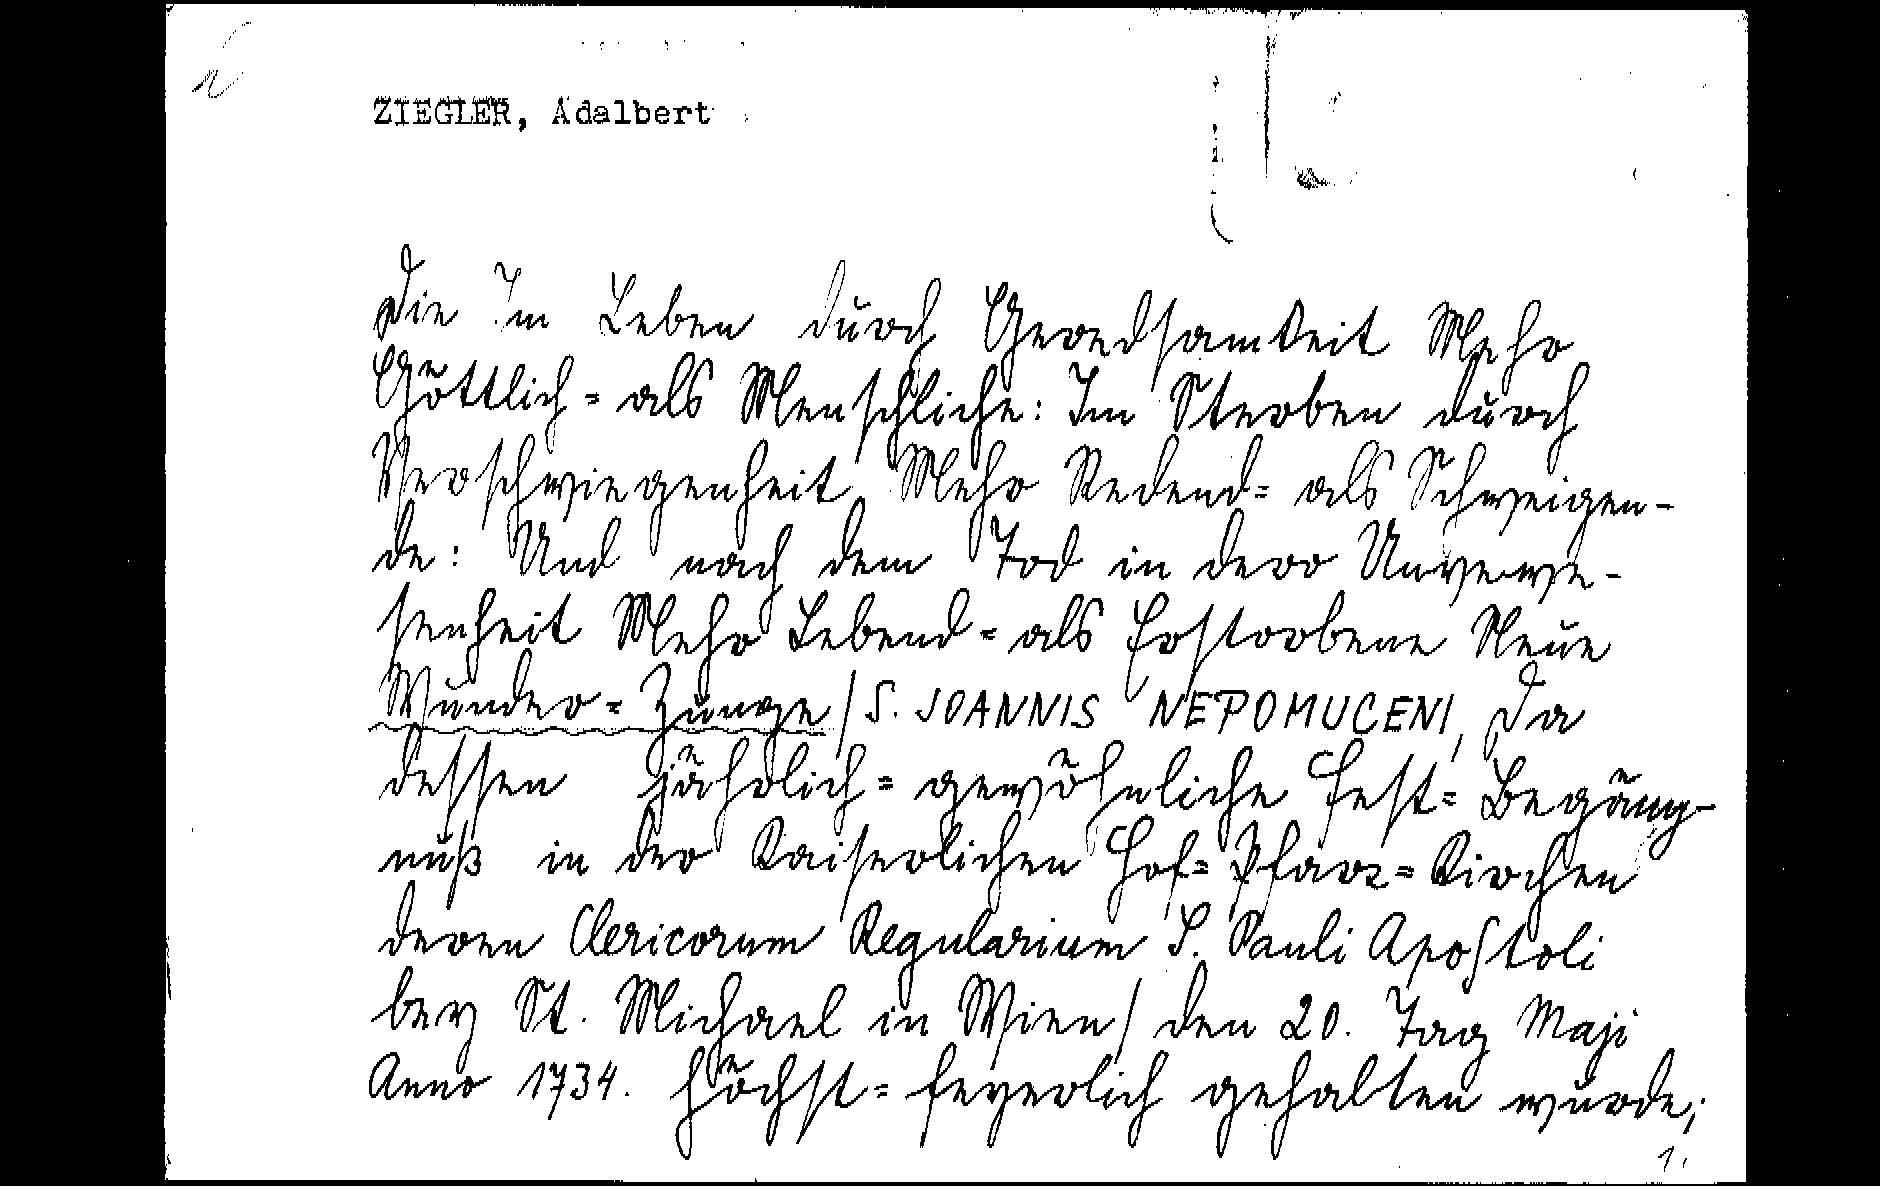 ZIEGLER, Adalbert
Die Im Leben durch Geredsamkeit Mehr
Göttlich= als Menschliche: Im Sterben durch
Verschwiegenheit Mehr Redend= als Schweigen-
de: Und nach dem Tod in dero Unverwe-
senheit Mehr Lebend= als Erstorbene Neue
Wunder= Zunge / S. JOANNIS NEPOMUCENI, Da
dessen jährlich= gewöhnliche Fest= Begäng-
nuß in der Kaiserlichen Hof= Pfarr= Kirchen
deren Clericorum Regularium S. Pauli Apostoli
bey St. Michael in Wien / den 20. Tag Maji
Anno 1734. höchst= feyerlich gehalten wurde;
1.